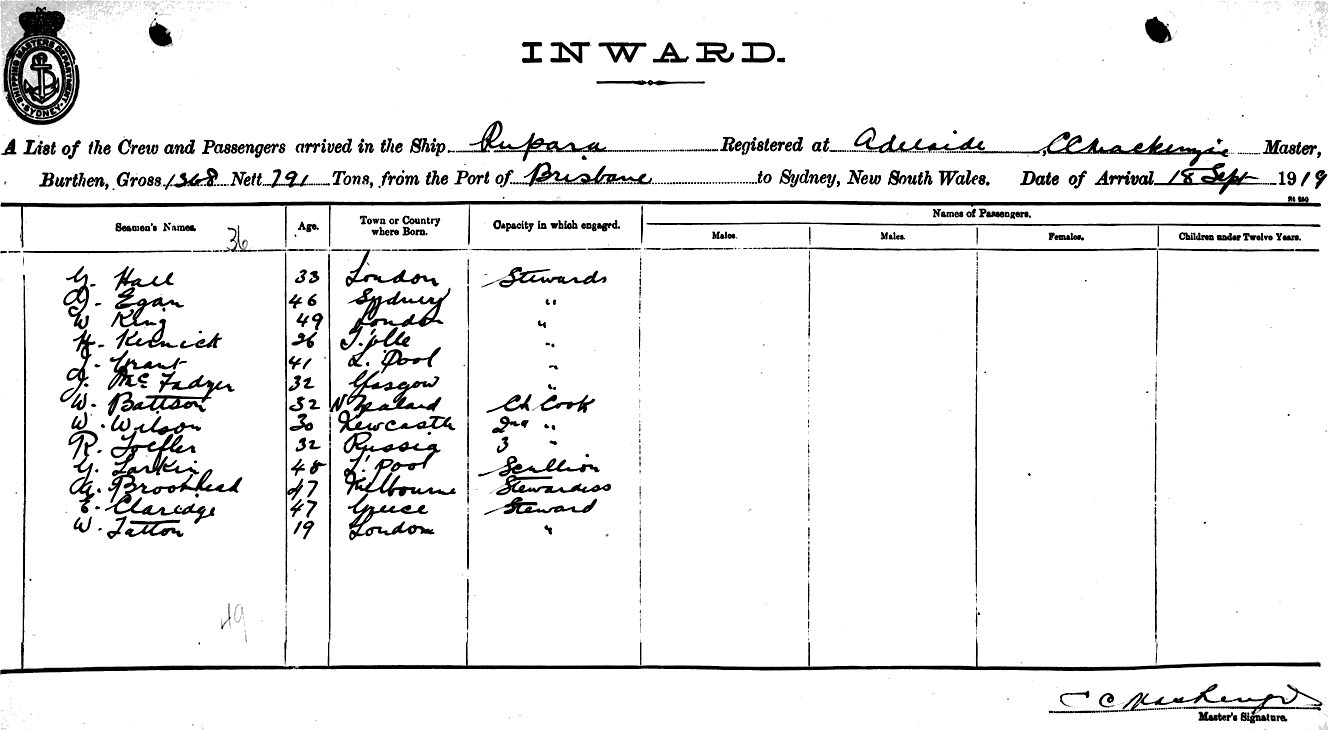 SHIPPING MASTERS DEPARTMENT SYDNEY
INWARD.
A List of the Crew and Passengers arrived in the Ship Rupara Registered at Adelaide, C C Mackenzie Master,
Burthen, Gross 1368 Nett 791 Tons, from the Port of Brisbane to Sydney, New South Wales. Date of Arrival 18 Sept 1919
Seamen's Names. 36 Age. Town or Country where Born. Capacity in which engaged. Names of Passengers.
Males. Males. Females. Children under Twelve Years.
G. Hall 33 London Stewards
Egan 46 Sydney "
W King 49 London "
H. 26 "
J. Grant 41 L.'Pool "
J. McFadyen 32 Glasgow "
W. Battson 32 N Zealand Ch Cook
W. Wilson 30 Newcastle 2nd "
R. 32 Russia 3 "
G. Larkin 48 L'Pool Scullion
47 Melbourne Stewardess
E. Claridge 47 Steward
W. Tatton 19 London "
49
C C Mackenzie
Master's Signature.